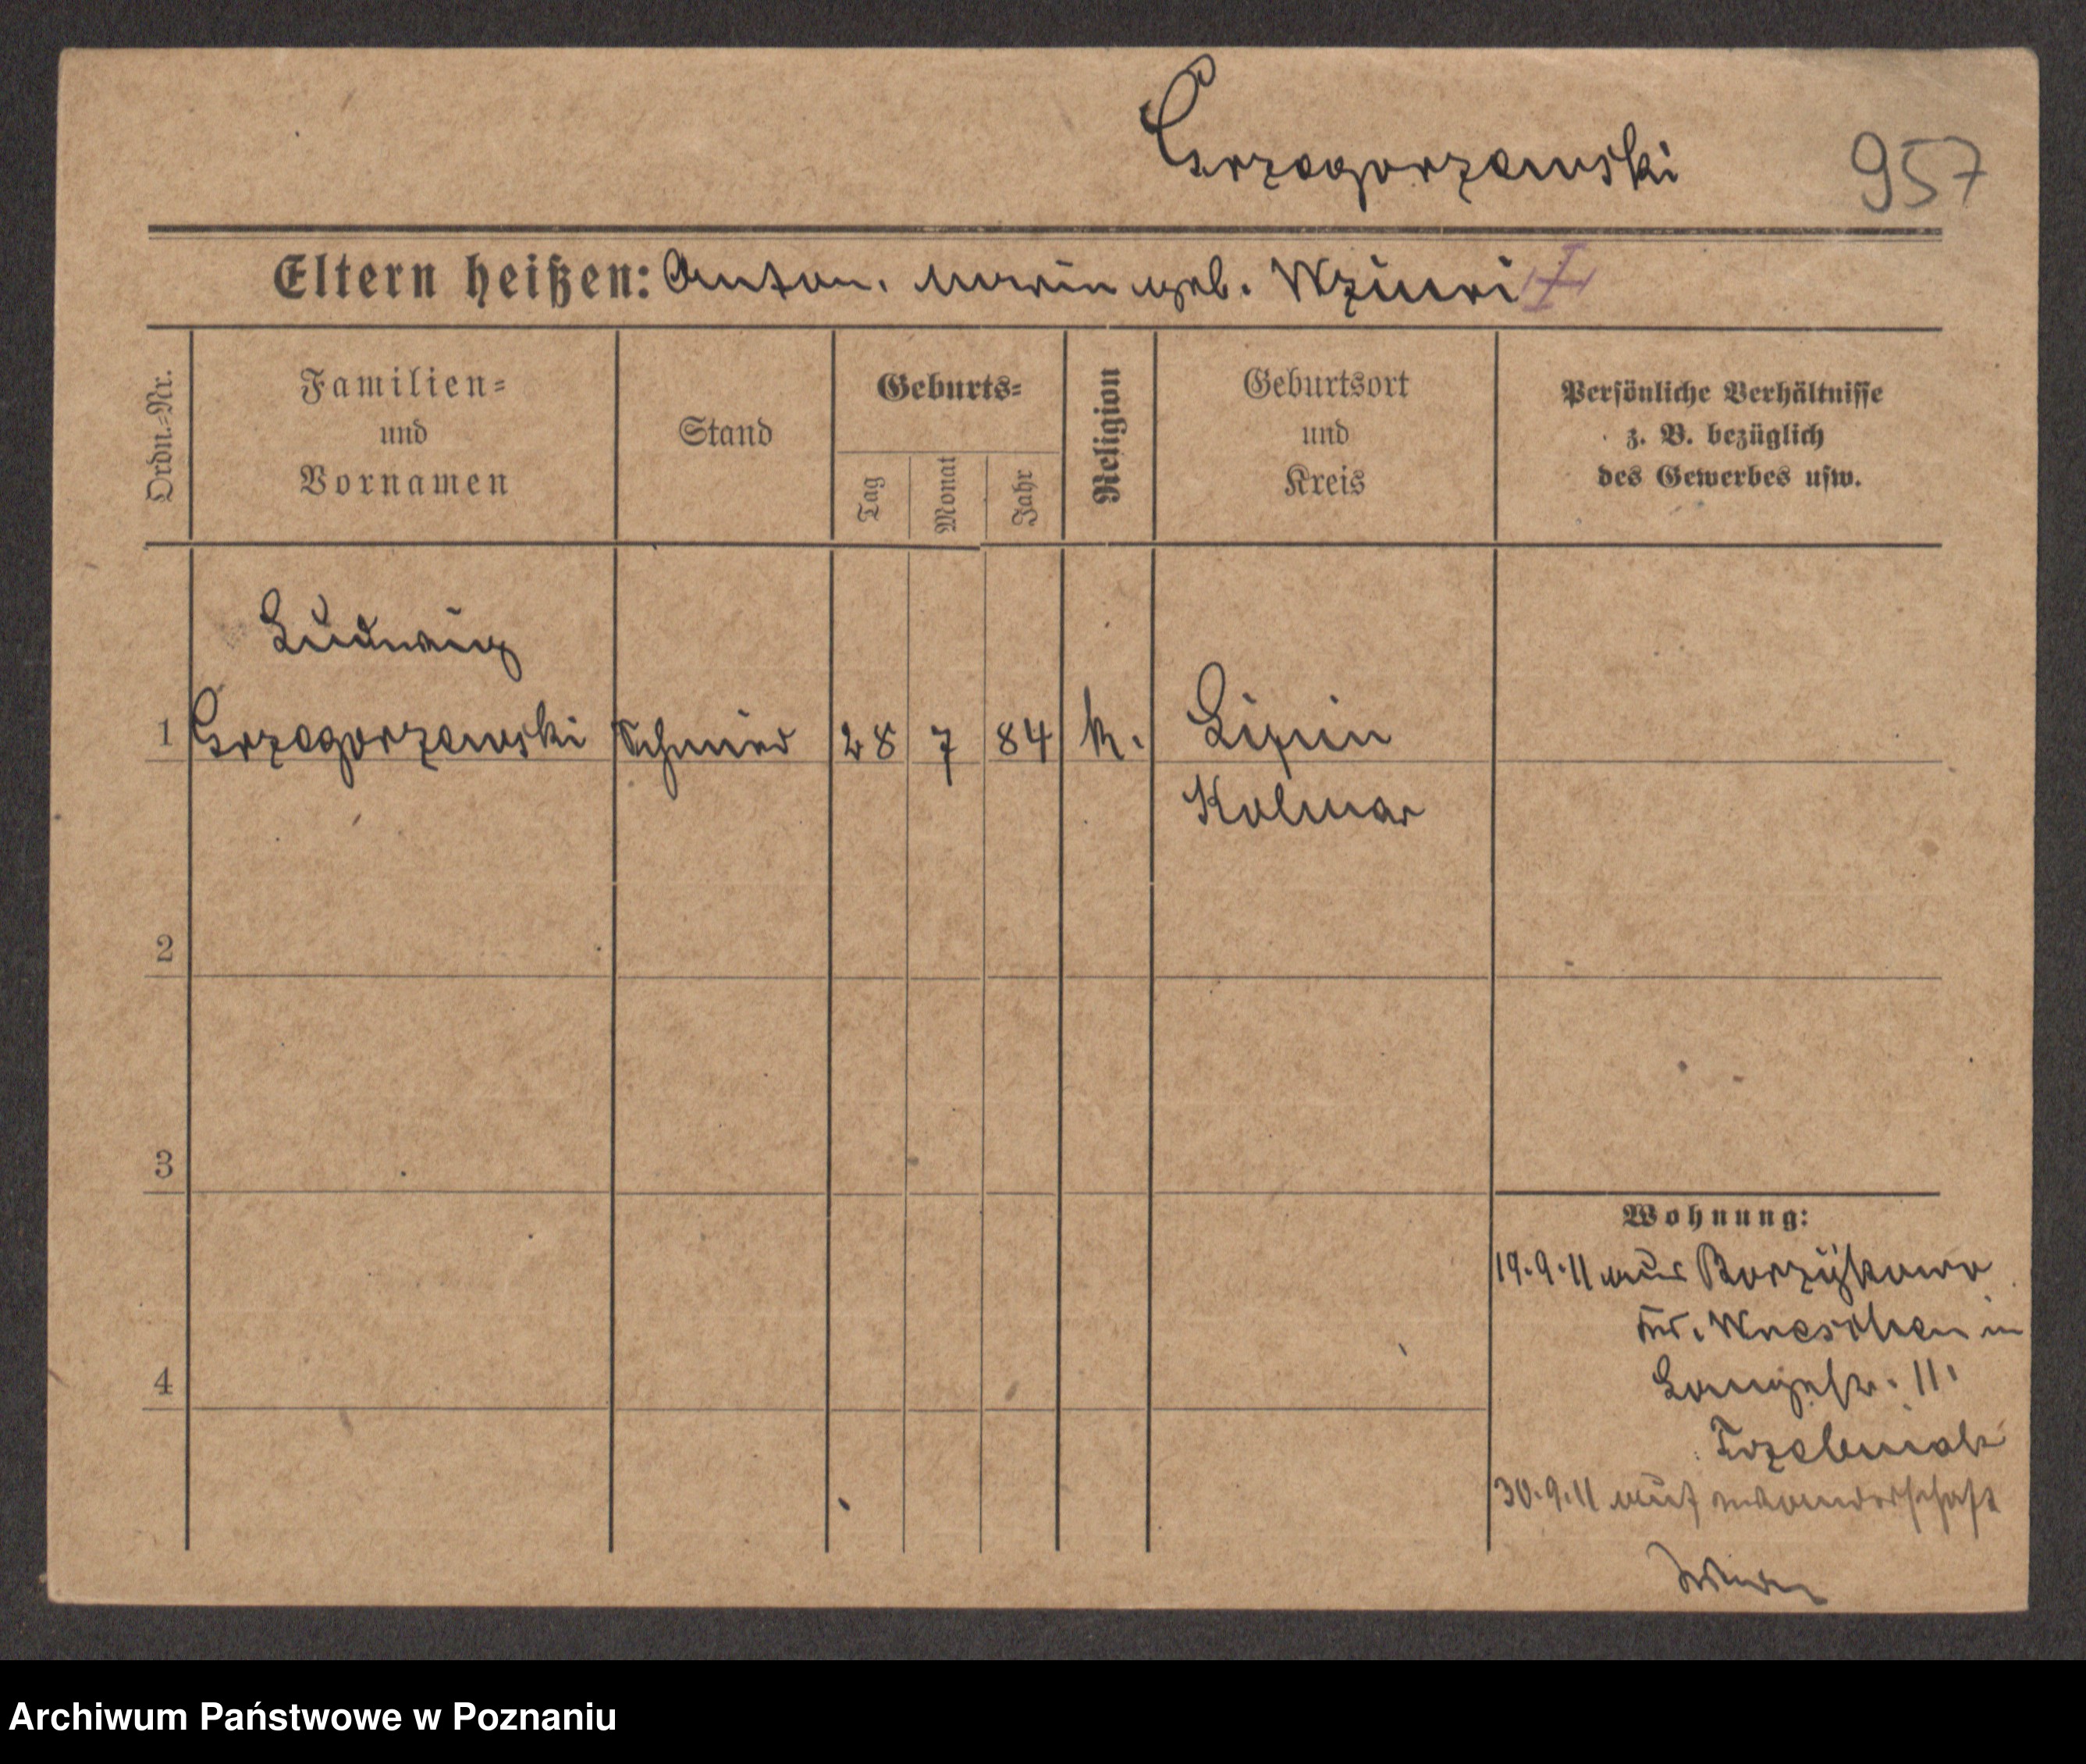 Grzegorzewski
957
Eltern heißen: Anton. Marie geb.
Ordn.=Nr.
Familien=
und
Vornamen
Stand
Geburts=
Tag
Monat
Jahr
Religion
Geburtsort
und
Kreis
Persönliche Verhältnisse
z. B. bezüglich
des Gewerbes usw.
Ludwig
1 Grzegorzewski Schmied 28 7 84 k. Lipin
Kolmar
2
3
4
Wohnung:
19.9.11 aus Borzykowo
Kr. Wreschen in
Langestr. 11.
30.9.11 auf Wanderschaft
Archiwum Państwowe w Poznaniu